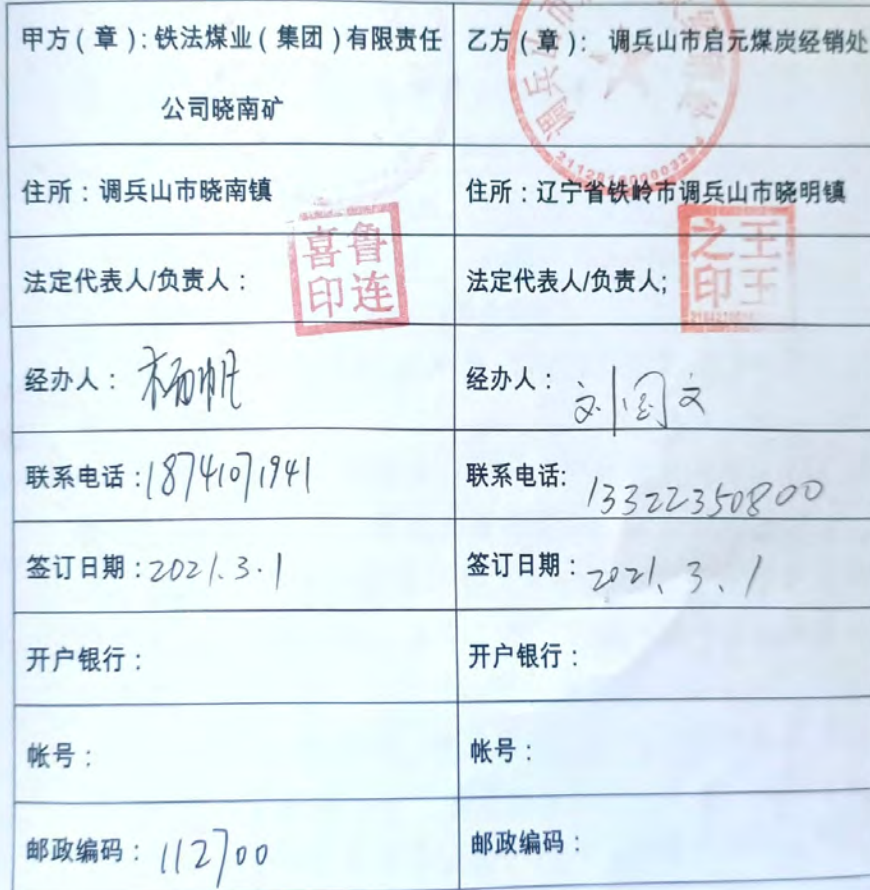 甲方(章):铁法煤业(集团)有限责任
公司晓南矿
乙方(章): 调兵山市启元煤炭经销处
住所:调兵山市晓南镇
住所:辽宁省铁岭市调兵山市晓明镇
法定代表人/负责人:
喜鲁
印连
法定代表人/负责人;
之王
印玉
经办人: 杨帆
经办人: 刘国文
联系电话:18741071941
联系电话: 13322350800
签订日期:2021.3.1
签订日期:2021.3.1
开户银行:
开户银行:
帐号:
帐号:
邮政编码:112700
邮政编码:
调兵山市